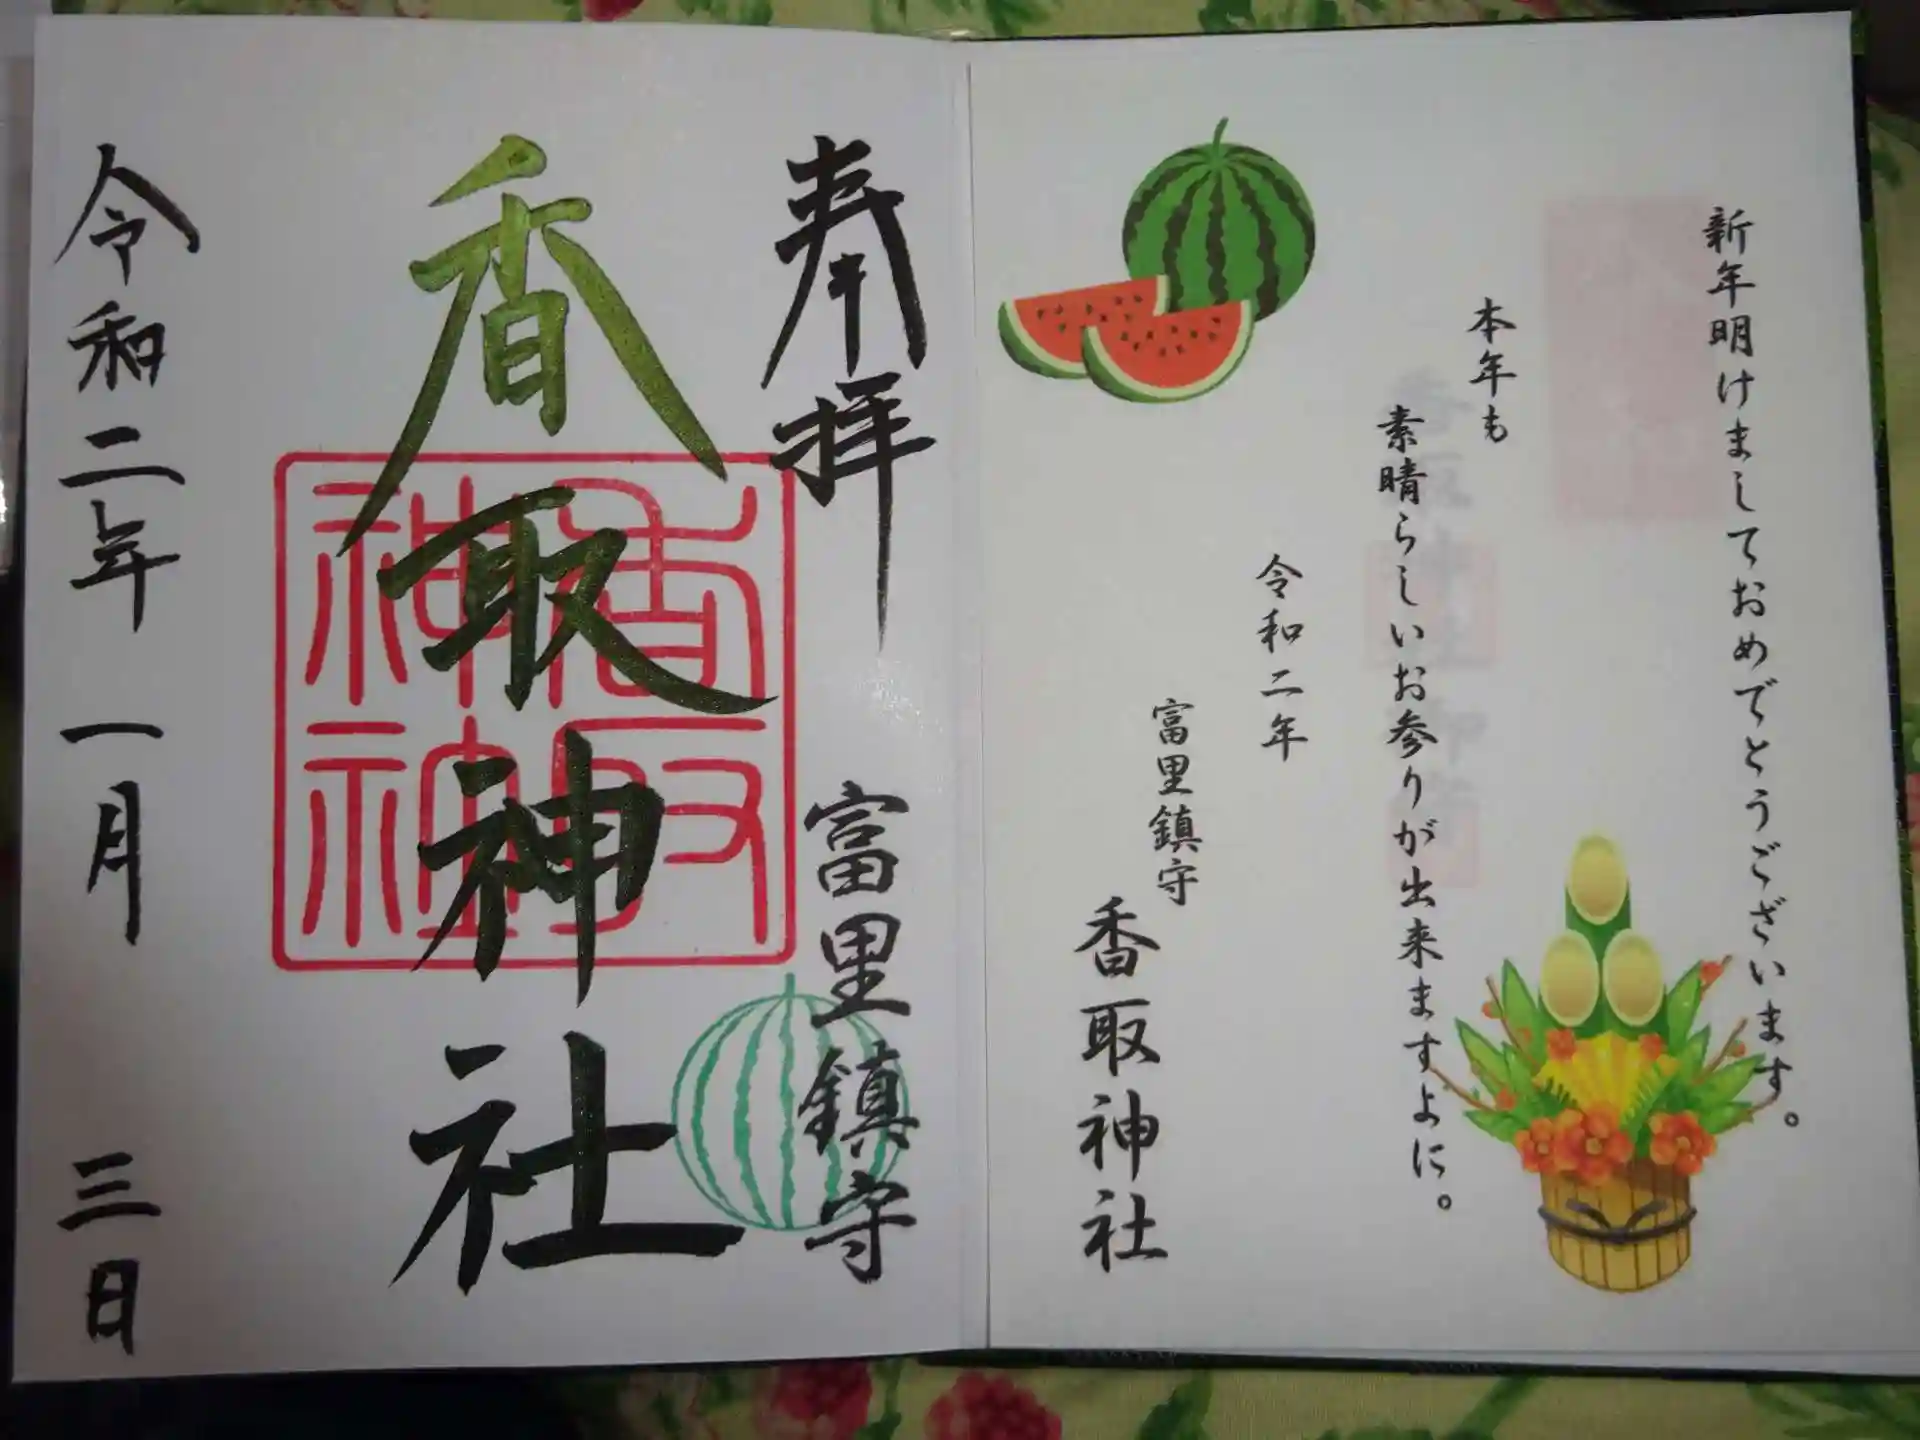 新年明けましておめでとうございます。
本年も
素晴らしいお参りが出来ますように。
令和二年
富里鎮守
香取神社
奉拝
富里鎮守
香取神社
香取
神社
令和二年 一月 三日